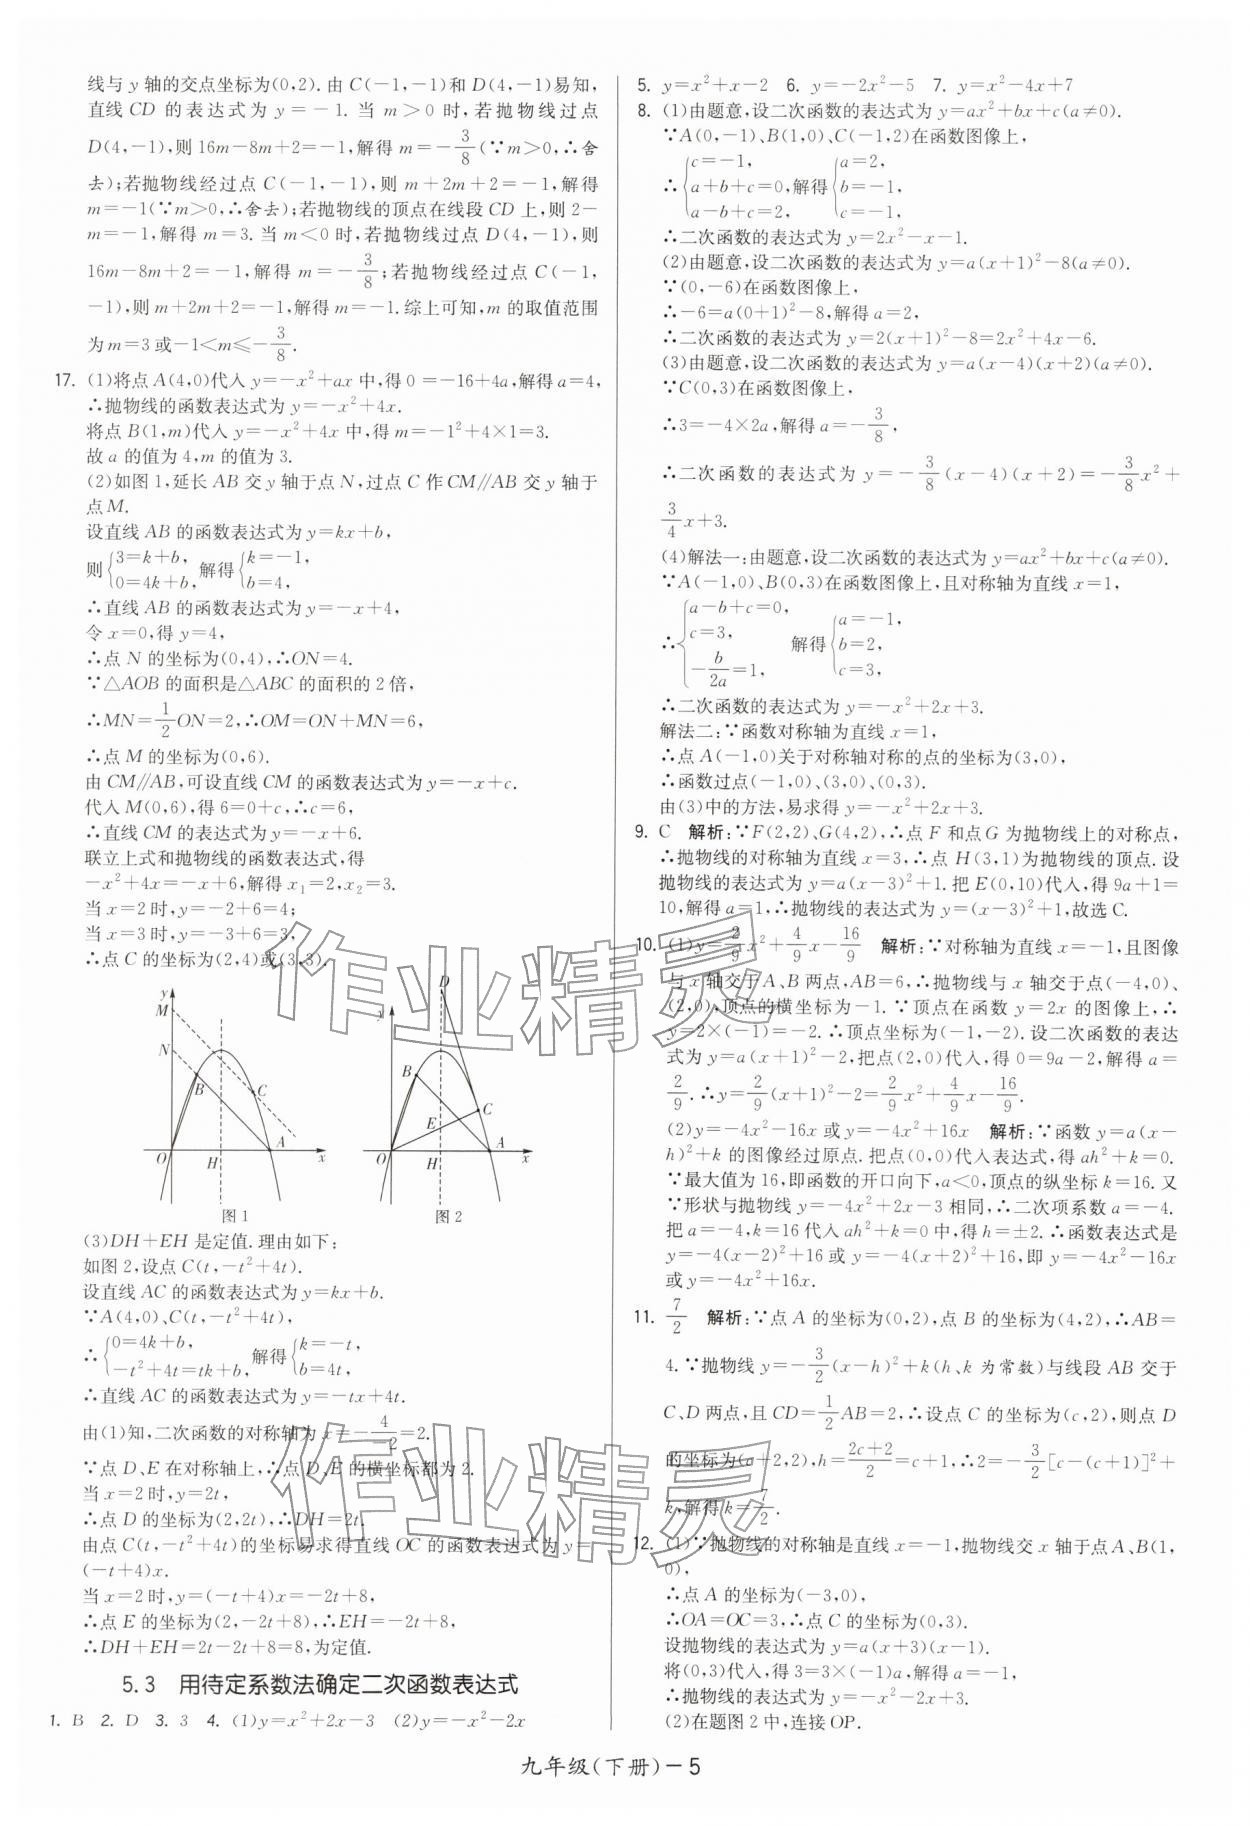 线与 y 轴的交点坐标为(0,2). 由 C(-1,-1)和 D(4,-1)易知,
直线 CD 的表达式为 y=-1. 当 m>0 时,若抛物线过点
D(4,-1),则 16m-8m+2=-1,解得 m=-3/8(∵m>0,∴舍
去);若抛物线经过点 C(-1,-1),则 m+2m+2=-1,解得
m=-1(∵m>0,∴舍去);若抛物线的顶点在线段 CD 上,则 2-
m=-1,解得 m=3. 当 m<0 时,若抛物线过点 D(4,-1),则
16m-8m+2=-1,解得 m=-3/8;若抛物线经过点 C(-1,
-1),则 m+2m+2=-1,解得 m=-1. 综上可知,m 的取值范围
为 m=3 或-1<m≤-3/8.
17. (1)将点 A(4,0)代入 y=-x²+ax 中,得 0=-16+4a,解得 a=4,
∴抛物线的函数表达式为 y=-x²+4x.
将点 B(1,m)代入 y=-x²+4x 中,得 m=-1²+4×1=3.
故 a 的值为 4,m 的值为 3.
(2)如图 1,延长 AB 交 y 轴于点 N,过点 C 作 CM∥AB 交 y 轴于
点 M.
设直线 AB 的函数表达式为 y=kx+b,
则{3=k+b, 0=4k+b, 解得{k=-1, b=4,
∴直线 AB 的函数表达式为 y=-x+4,
令 x=0,得 y=4,
∴点 N 的坐标为(0,4),∴ON=4.
∵△AOB 的面积是△ABC 的面积的 2 倍,
∴MN=1/2ON=2,∴OM=ON+MN=6,
∴点 M 的坐标为(0,6).
由 CM∥AB,可设直线 CM 的函数表达式为 y=-x+c.
代入 M(0,6),得 6=0+c,∴c=6,
∴直线 CM 的表达式为 y=-x+6.
联立上式和抛物线的函数表达式,得
-x²+4x=-x+6,解得 x₁=2,x₂=3.
当 x=2 时,y=-2+6=4;
当 x=3 时,y=-3+6=3,
∴点 C 的坐标为(2,4)或(3,3).
y M N B C O H A x
图 1
D y B C E O H A x
图 2
(3)DH+EH 是定值. 理由如下:
如图 2,设点 C(t,-t²+4t).
设直线 AC 的函数表达式为 y=kx+b.
∵A(4,0)、C(t,-t²+4t),
∴{0=4k+b, -t²+4t=tk+b, 解得{k=-t, b=4t,
∴直线 AC 的函数表达式为 y=-tx+4t.
由(1)知,二次函数的对称轴为 x=-4/-2=2.
∵点 D、E 在对称轴上,∴点 D、E 的横坐标都为 2.
当 x=2 时,y=2t,
∴点 D 的坐标为(2,2t),∴DH=2t.
由点 C(t,-t²+4t)的坐标易求得直线 OC 的函数表达式为 y=
(-t+4)x.
当 x=2 时,y=(-t+4)x=-2t+8,
∴点 E 的坐标为(2,-2t+8),∴EH=-2t+8,
∴DH+EH=2t-2t+8=8,为定值.
5.3 用待定系数法确定二次函数表达式
1. B 2. D 3. 3 4. (1)y=x²+2x-3 (2)y=-x²-2x
5. y=x²+x-2 6. y=-2x²-5 7. y=x²-4x+7
8. (1)由题意,设二次函数的表达式为 y=ax²+bx+c(a≠0).
∵A(0,-1)、B(1,0)、C(-1,2)在函数图像上,
∴{c=-1, a+b+c=0, a-b+c=2, 解得{a=2, b=-1, c=-1,
∴二次函数的表达式为 y=2x²-x-1.
(2)由题意,设二次函数的表达式为 y=a(x+1)²-8(a≠0).
∵(0,-6)在函数图像上,
∴-6=a(0+1)²-8,解得 a=2,
∴二次函数的表达式为 y=2(x+1)²-8=2x²+4x-6.
(3)由题意,设二次函数的表达式为 y=a(x-4)(x+2)(a≠0).
∵C(0,3)在函数图像上,
∴3=-4×2a,解得 a=-3/8,
∴二次函数的表达式为 y=-3/8(x-4)(x+2)=-3/8x²+
3/4x+3.
(4)解法一:由题意,设二次函数的表达式为 y=ax²+bx+c(a≠0).
∵A(-1,0)、B(0,3)在函数图像上,且对称轴为直线 x=1,
∴{a-b+c=0, c=3, -b/2a=1, 解得{a=-1, b=2, c=3,
∴二次函数的表达式为 y=-x²+2x+3.
解法二:∵函数对称轴为直线 x=1,
∴点 A(-1,0)关于对称轴对称的点的坐标为(3,0),
∴函数过点(-1,0)、(3,0)、(0,3).
由(3)中的方法,易求得 y=-x²+2x+3.
9. C 解析:∵F(2,2)、G(4,2),∴点 F 和点 G 为抛物线上的对称点,
∴抛物线的对称轴为直线 x=3,∴点 H(3,1)为抛物线的顶点. 设
抛物线的表达式为 y=a(x-3)²+1. 把 E(0,10)代入,得 9a+1=
10,解得 a=1,∴抛物线的表达式为 y=(x-3)²+1,故选 C.
10. (1)y=2/9x²+4/9x-16/9 解析:∵对称轴为直线 x=-1,且图像
与 x 轴交于 A、B 两点,AB=6,∴抛物线与 x 轴交于点(-4,0)、
(2,0),顶点的横坐标为-1. ∵顶点在函数 y=2x 的图像上,∴
y=2×(-1)=-2. ∴顶点坐标为(-1,-2). 设二次函数的表达
式为 y=a(x+1)²-2,把点(2,0)代入,得 0=9a-2,解得 a=
2/9. ∴y=2/9(x+1)²-2=2/9x²+4/9x-16/9.
(2)y=-4x²-16x 或 y=-4x²+16x 解析:∵函数 y=a(x-
h)²+k 的图像经过原点. 把点(0,0)代入表达式,得 ah²+k=0.
∵最大值为 16,即函数的开口向下,a<0,顶点的纵坐标 k=16. 又
∵形状与抛物线 y=-4x²+2x-3 相同,∴二次项系数 a=-4.
把 a=-4,k=16 代入 ah²+k=0 中,得 h=±2. ∴函数表达式是
y=-4(x-2)²+16 或 y=-4(x+2)²+16,即 y=-4x²-16x
或 y=-4x²+16x.
11. 7/2 解析:∵点 A 的坐标为(0,2),点 B 的坐标为(4,2),∴AB=
4. ∵抛物线 y=-3/2(x-h)²+k(h、k 为常数)与线段 AB 交于
C、D 两点,且 CD=1/2AB=2,∴设点 C 的坐标为(c,2),则点 D
的坐标为(c+2,2),h=(2c+2)/2=c+1,∴2=-3/2[c-(c+1)]²+
k,解得 k=7/2.
12. (1)∵抛物线的对称轴是直线 x=-1,抛物线交 x 轴于点 A、B(1,
0),
∴点 A 的坐标为(-3,0),
∴OA=OC=3,∴点 C 的坐标为(0,3).
设抛物线的表达式为 y=a(x+3)(x-1).
将(0,3)代入,得 3=3×(-1)a,解得 a=-1,
∴抛物线的表达式为 y=-x²-2x+3.
(2)在题图 2 中,连接 OP.
作业精灵
作业精灵
九年级(下册)-5